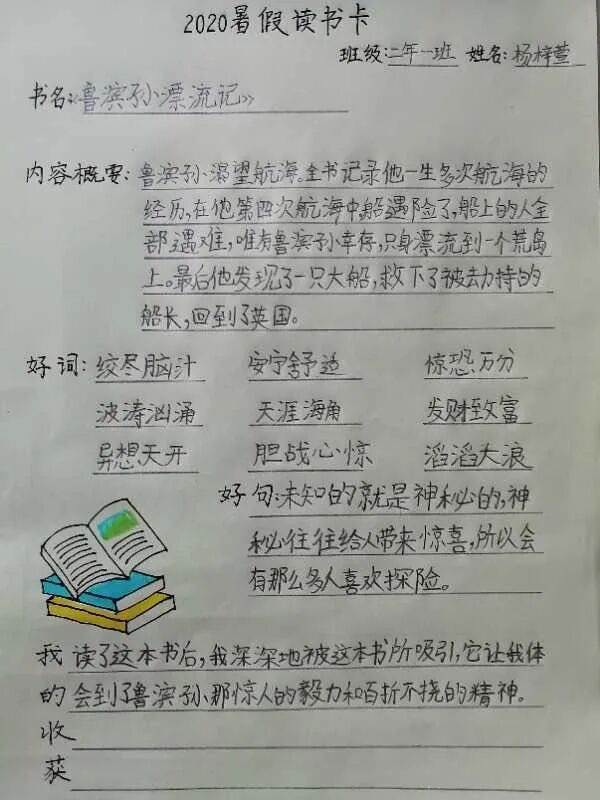 2020暑假读书卡
班级:二年一班 姓名:杨梓萱
书名:《鲁滨孙漂流记》
内容概要:鲁滨孙渴望航海。全书记录他一生多次航海的
经历,在他第四次航海中,船遇险了,船上的人全
部遇难,唯有鲁滨孙幸存,只身漂流到一个荒岛
上。最后他发现了一只大船,救下了被劫持的
船长,回到了英国。
好词:绞尽脑汁 安宁舒适 惊恐万分
波涛汹涌 天涯海角 发财致富
异想天开 胆战心惊 滔滔大浪
好句:未知的就是神秘的,神
秘往往给人带来惊喜,所以会
有那么多人喜欢探险。
我 读了这本书后,我深深地被这本书所吸引,它让我体
的 会到了鲁滨孙那惊人的毅力和百折不挠的精神。
收
获